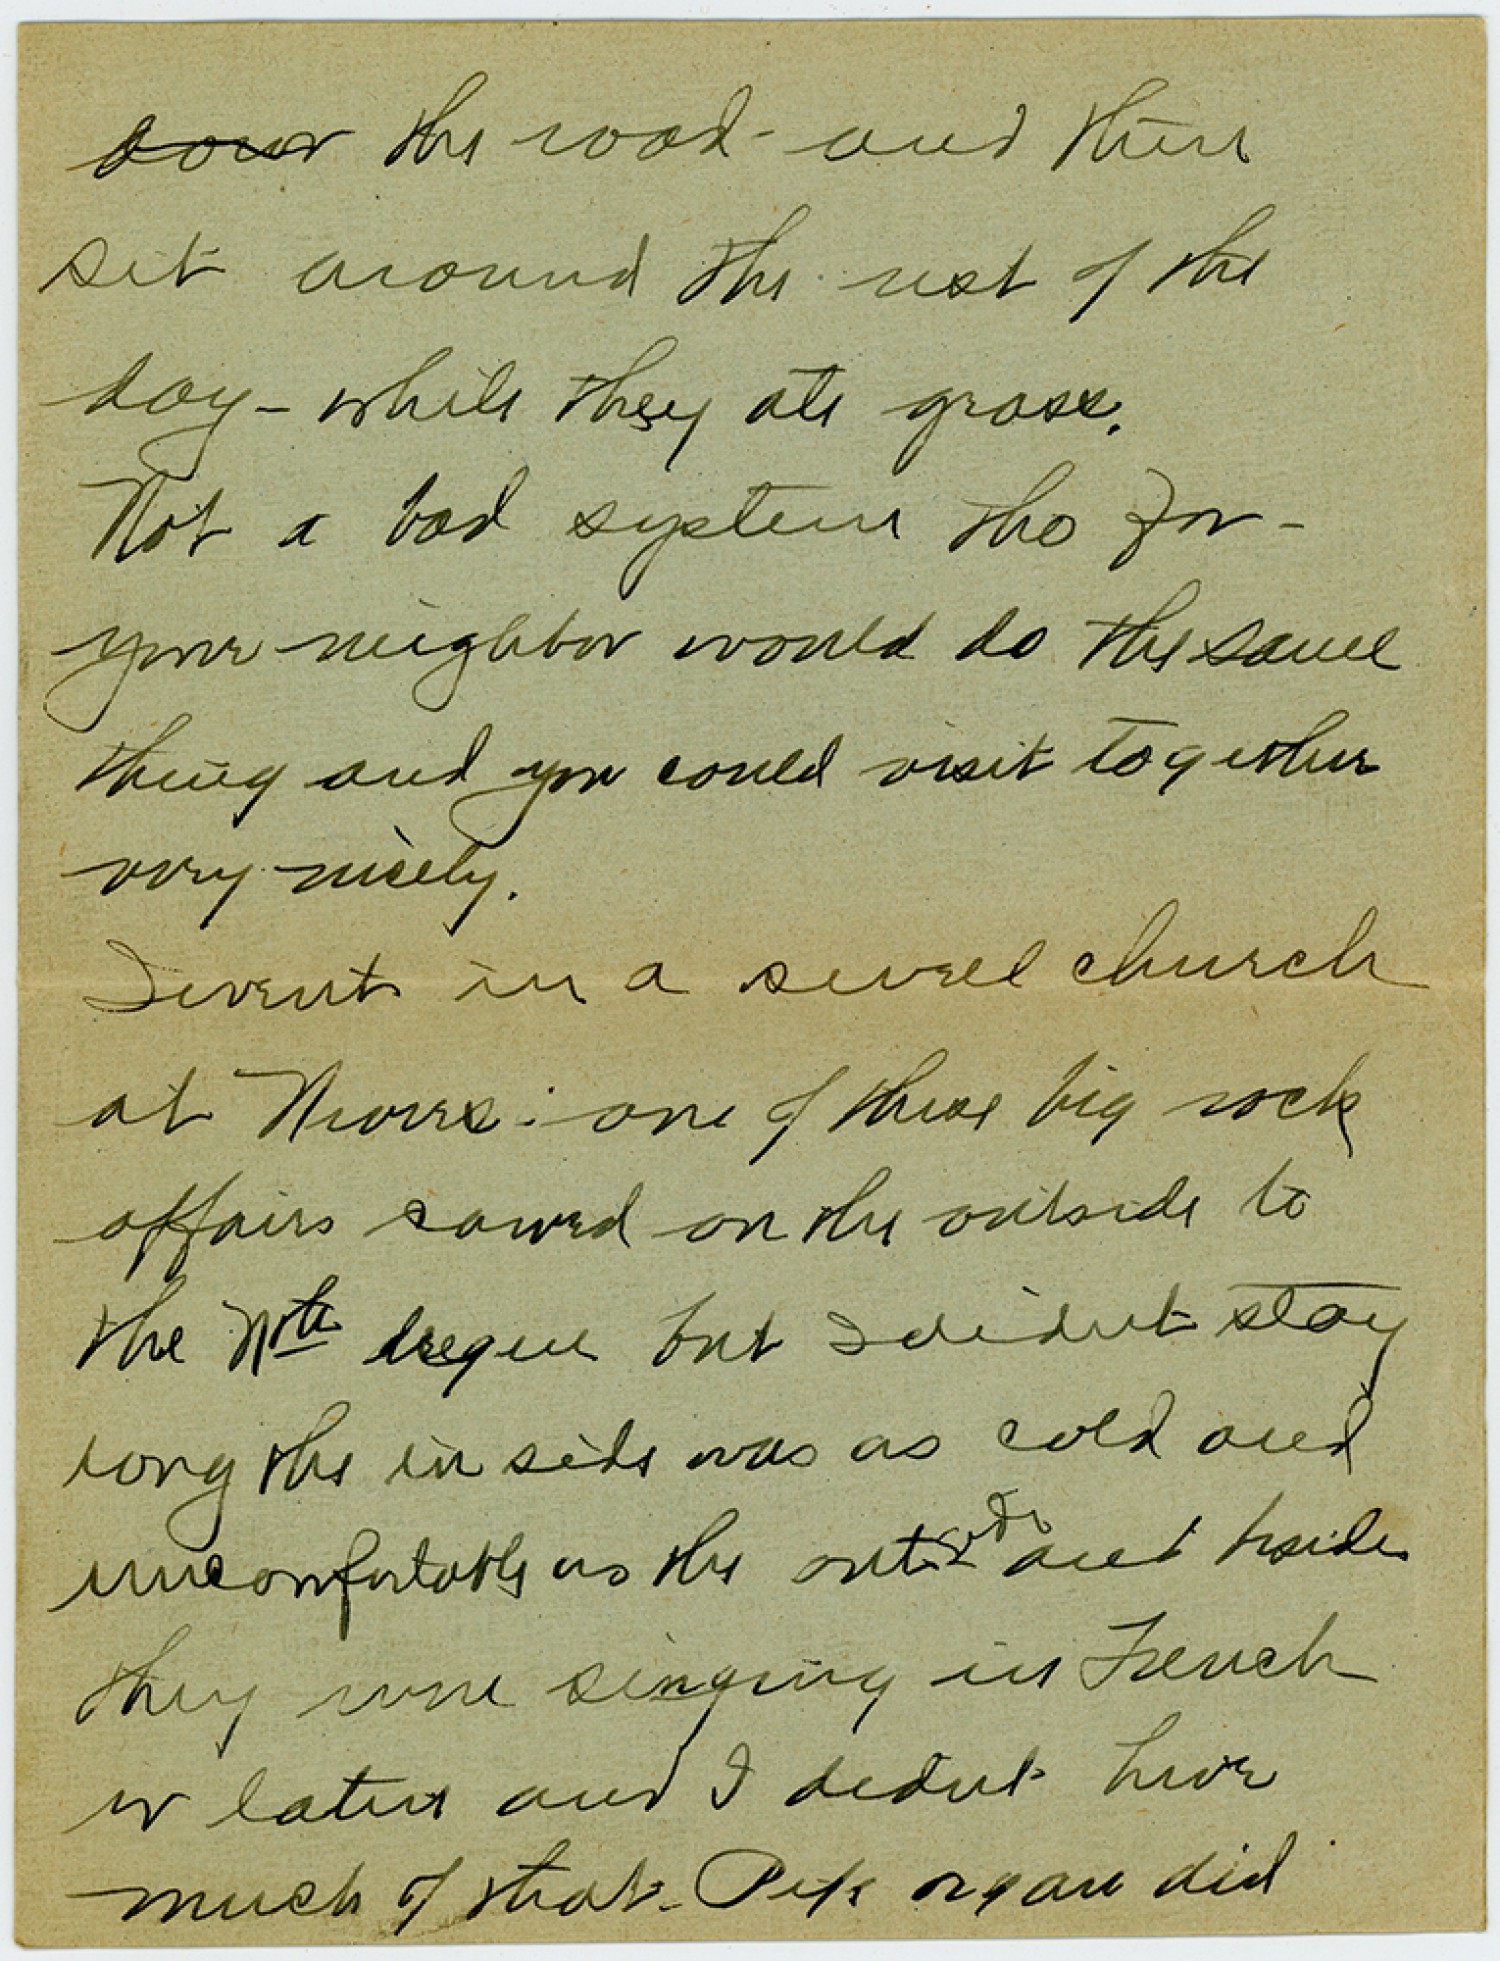 down the road - and then
sit around the rest of the
day - while they ate grass.
Not a bad system tho for -
your neighbor would do the same
thing and you could visit together
very nicely.
I went in a swel church
at : one of these big rock
affairs carved on the outside to
the Nth degree but I didn't stay
long the in side was as cold and
uncomfortable as the outside and beside
they were singing in French
or laten and I didnt hear
much of that - Pipe organ did